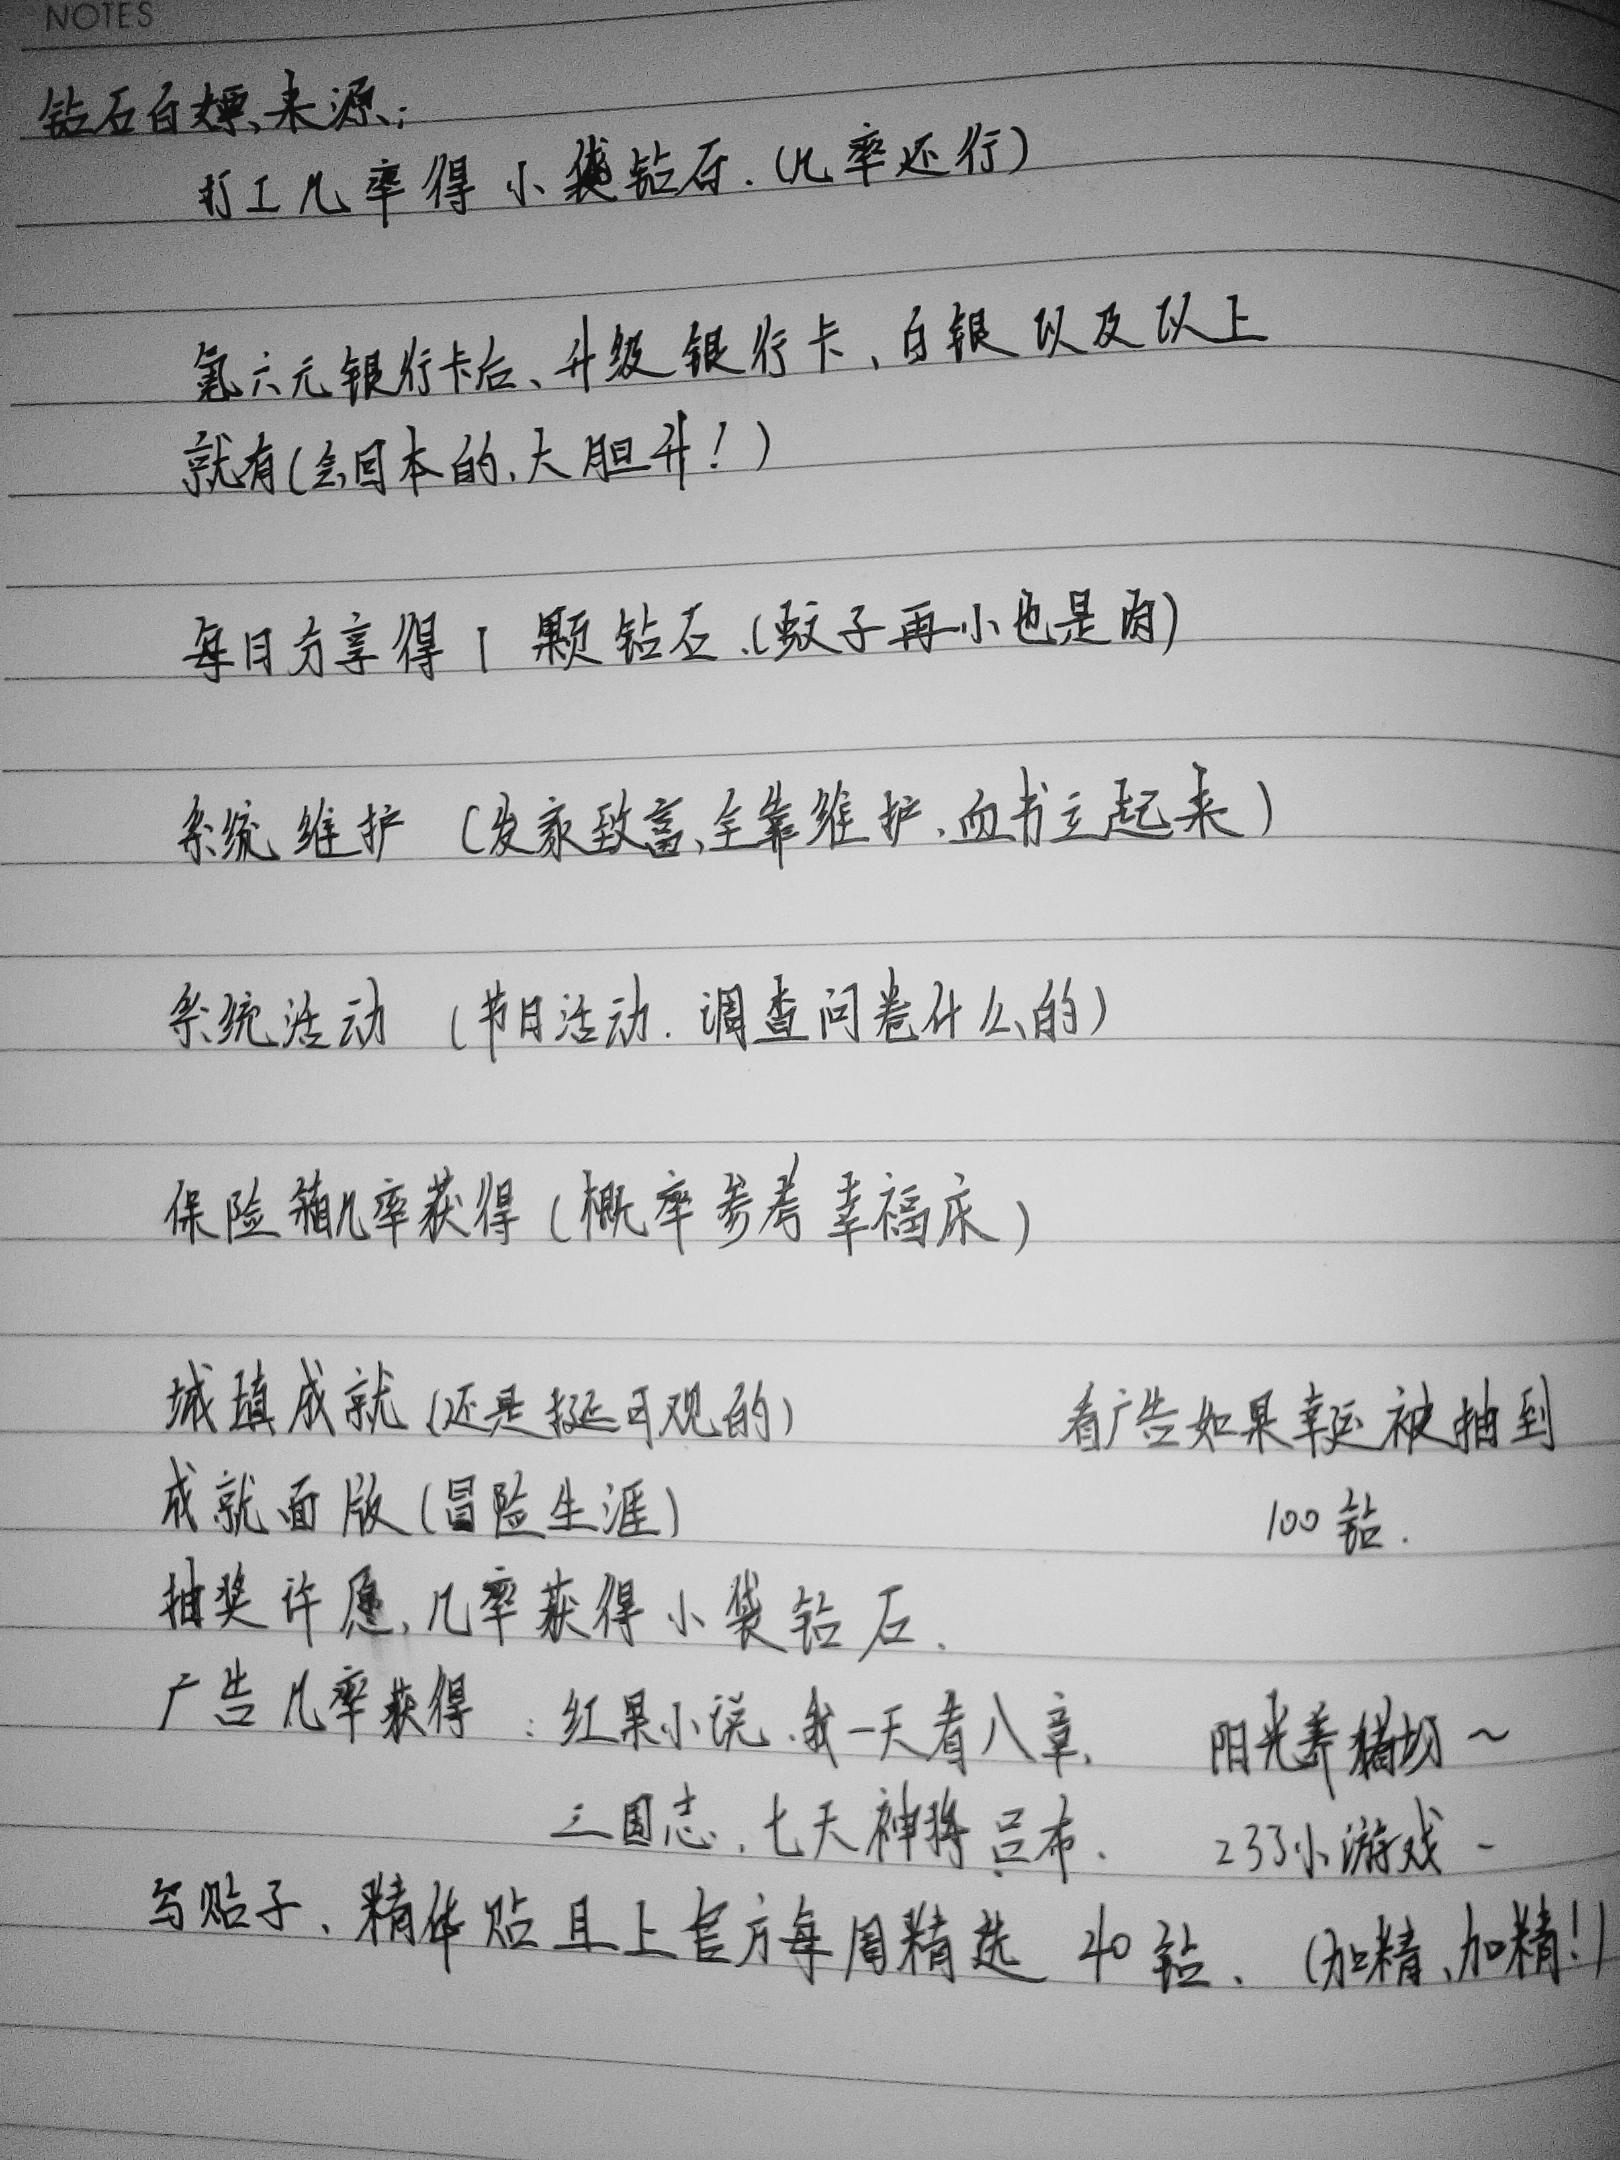 NOTES
钻石白嫖来源:
打工几率得小袋钻石.(几率还行)
氪六元银行卡后、升级银行卡、白银以及以上
就有(会回本的、大胆升!)
每日分享得1颗钻石.(蚊子再小也是肉)
系统维护 (发家致富、全靠维护、血书立起来)
系统活动 (节日活动.调查问卷什么的)
保险箱几率获得(概率参考幸福床)
城镇成就(还是挺可观的) 看广告如果幸运被抽到
成就面版(冒险生涯) 100钻.
抽奖许愿,几率获得小袋钻石.
广告几率获得:红果小说.我一天看八章. 阳光养猪场~
三国志.七天神将吕布. 233小游戏~
写贴子、精体贴且上官方每周精选40钻、(加精、加精!)